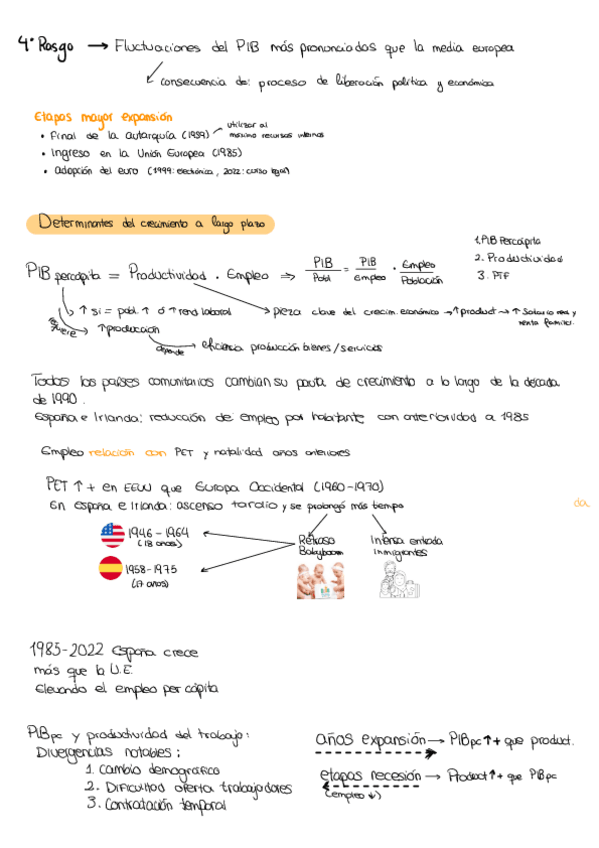 4º Rasgo → Fluctuaciones del PIB más pronunciadas que la media europea
consecuencia de: proceso de liberación política y económica
Etapas mayor expansión
• Final de la autarquía (1959)
utilizar al
máximo recursos internos
• Ingreso en la Unión Europea (1985)
• adopción del euro (1999: electrónica, 2022: curso legal)
Determinantes del crecimiento a largo plazo
1. PIB Percápita
2. Productividad
3. PTF
PIB percápita = Productividad · Empleo ⇒ PIB/Pobl = PIB/Empleo · Empleo/Población
↑ si = pobl. ↑ ó ↑ rend laboral
pieza clave del crecim. económico → ↑ product → ↑ Salario real y
renta familiar.
requiere ↑ producción
depende eficiencia producción bienes/servicios
Todos los países comunitarios cambian su pauta de crecimiento a lo largo de la década
de 1990.
España e Irlanda: reducción de empleo por habitante con anterioridad a 1985
Empleo relación con PET y natalidad años anteriores
PET ↑ + en EEUU que Europa Occidental (1960-1970)
En España e Irlanda: ascenso tardío y se prolongó más tiempo
da
1946 - 1964
(18 años)
Retraso
Babyboom
Intensa entrada
inmigrantes
1958-1975
(17 años)
1985-2022 España crece
más que la U.E.
Elevando el empleo per cápita
PIBpc y productividad del trabajo:
Divergencias notables:
1. Cambio demográfico
2. Dificultad oferta trabajadores
3. Contratación temporal
años expansión → PIBpc ↑ + que product.
etapas recesión → Product ↑ + que PIBpc
(empleo ↓)